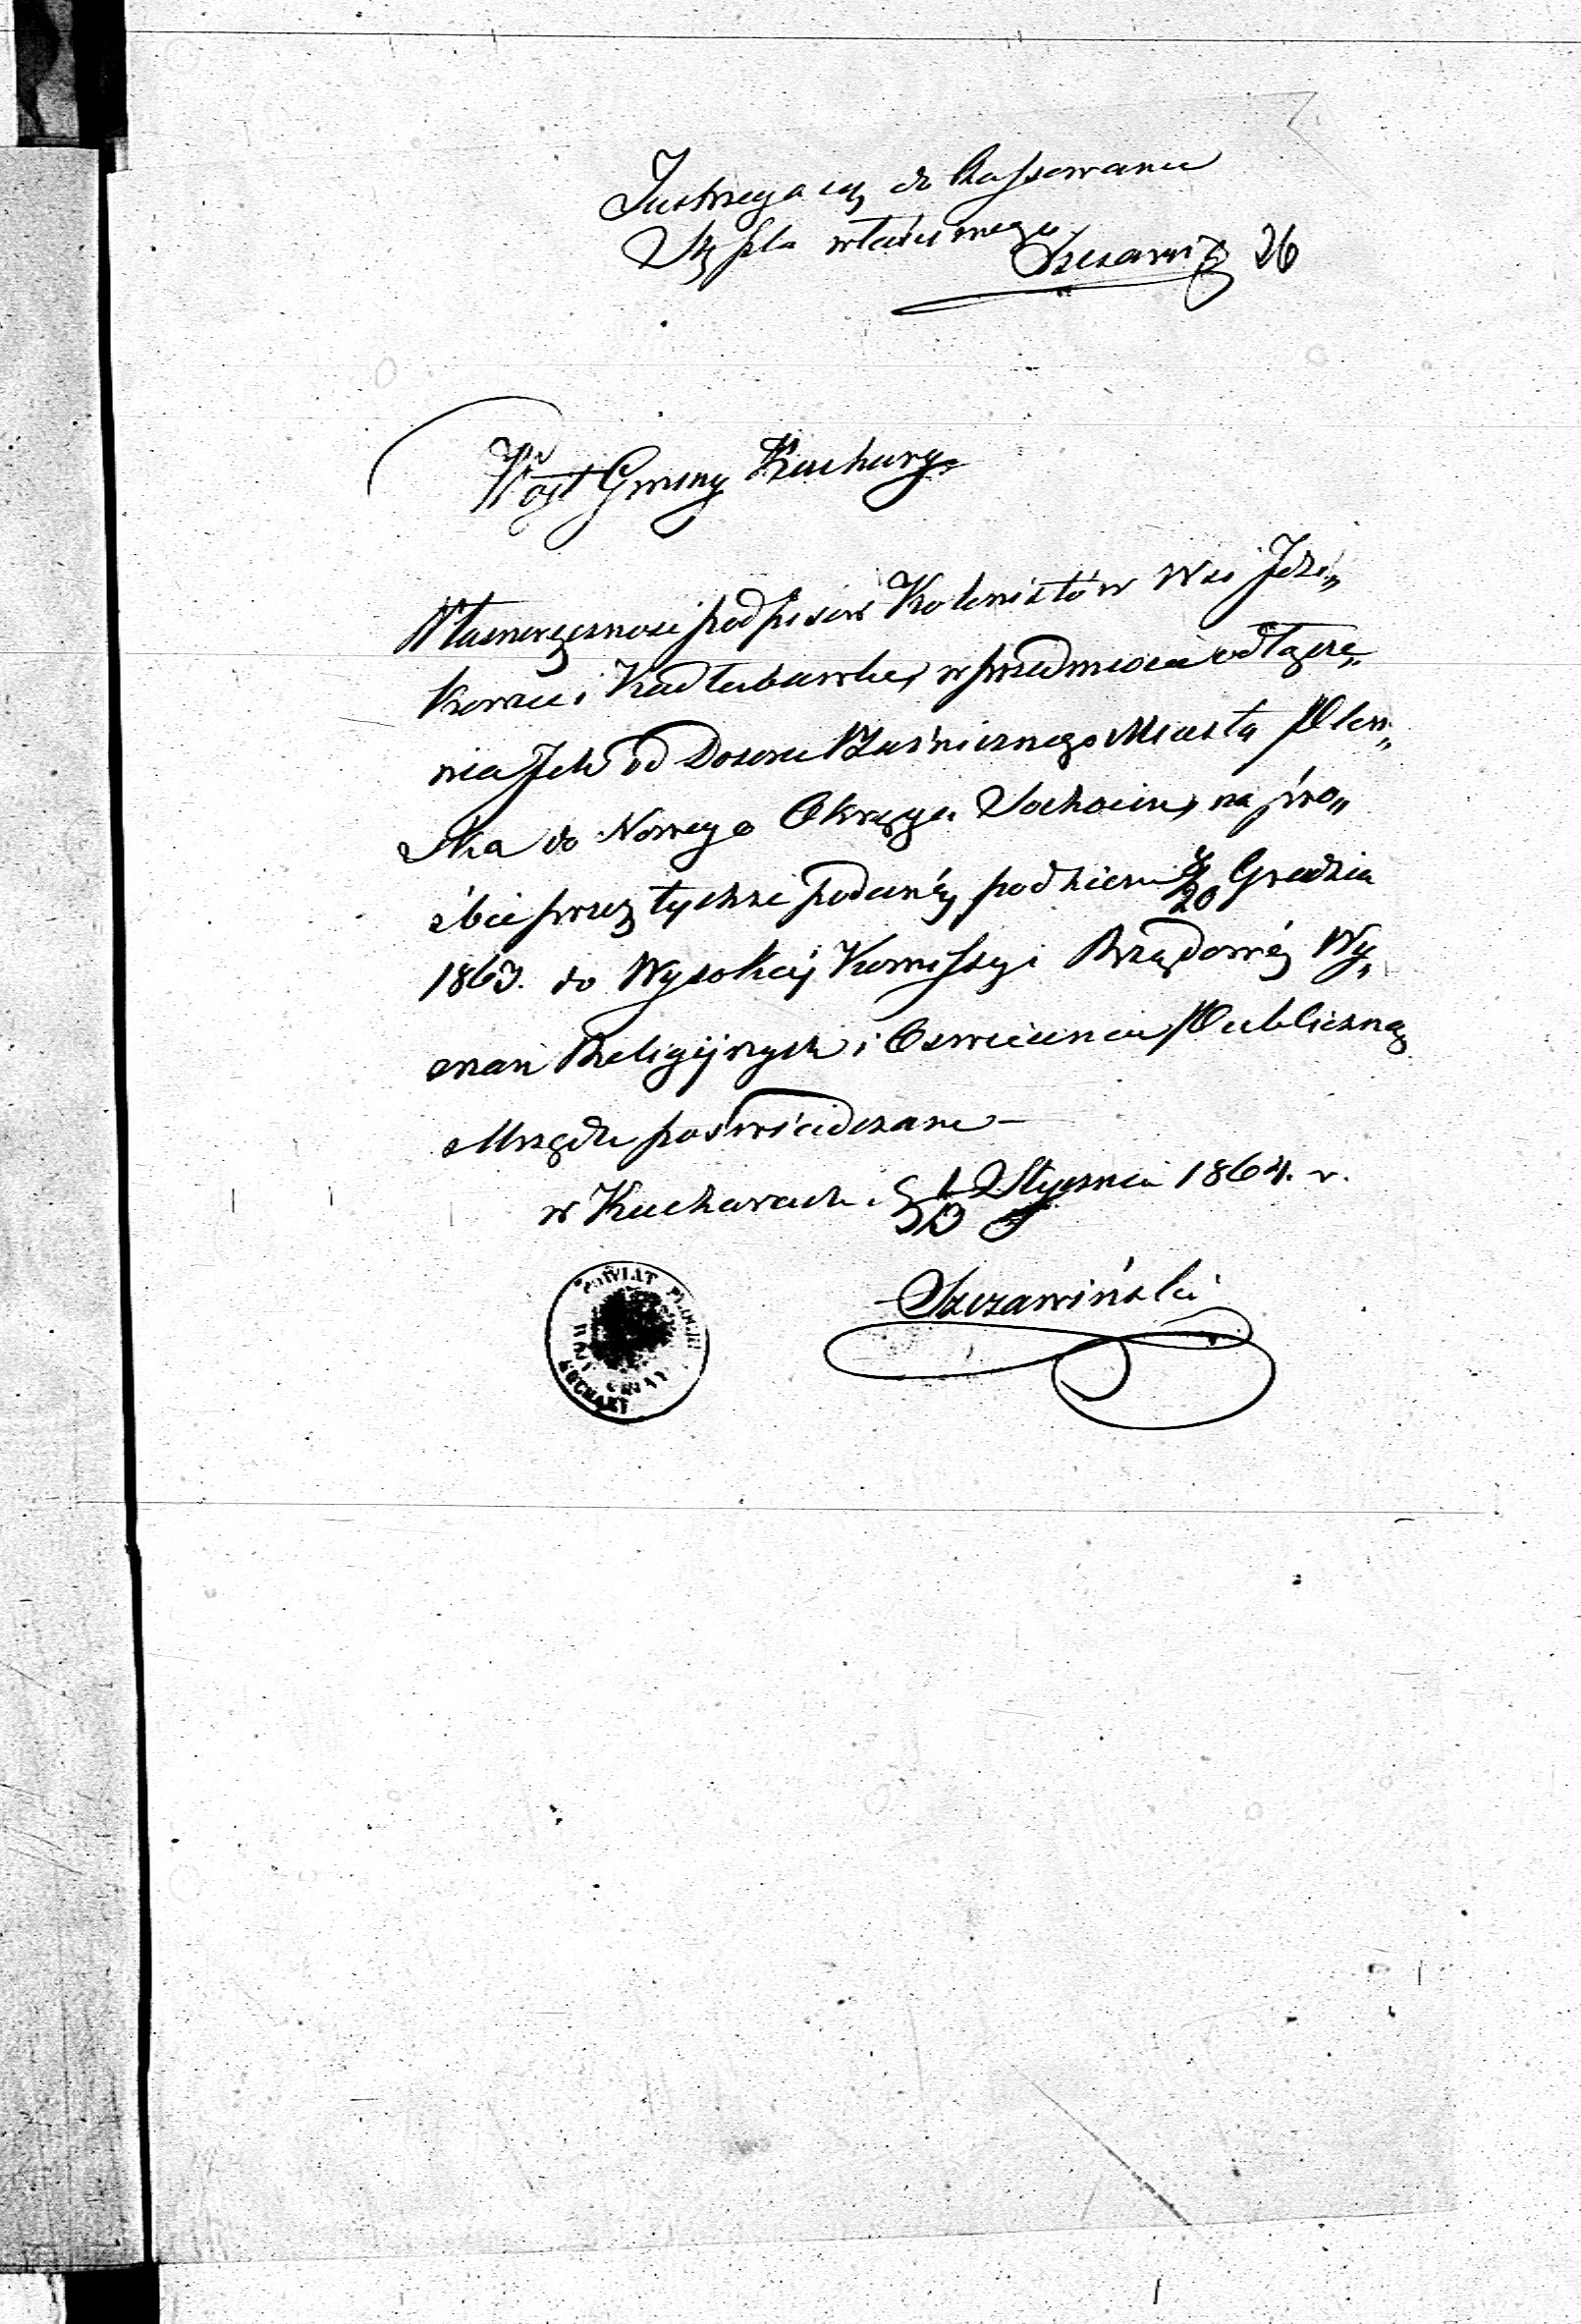 do Kassowania
Stępla właściwego
Szczawiń 26
Wójt Gminy Kuchary
Własnoręczność podpisów Kolonistów Wsi Jeże„
wa i Kadłubówka, w przedmiocie odłącze„
nia Ich od Dozoru Bużniczego Miasta Płon„
ska do Nowego Okręgu Sochocin, na pro„
źbie przez tychże podanéj pod dniem 8/20 Grudnia
1863. do Wysokiej Kommissyi Rządowéj Wy„
znań Religijnych i Oświecenia Publicznego
z Urzędu poświadczam —
w Kucharach d. 1/13 Stycznia 1864. r.
Szczawiński
POWIAT PŁOCKI
WÓJT GMINY
KUCHARY